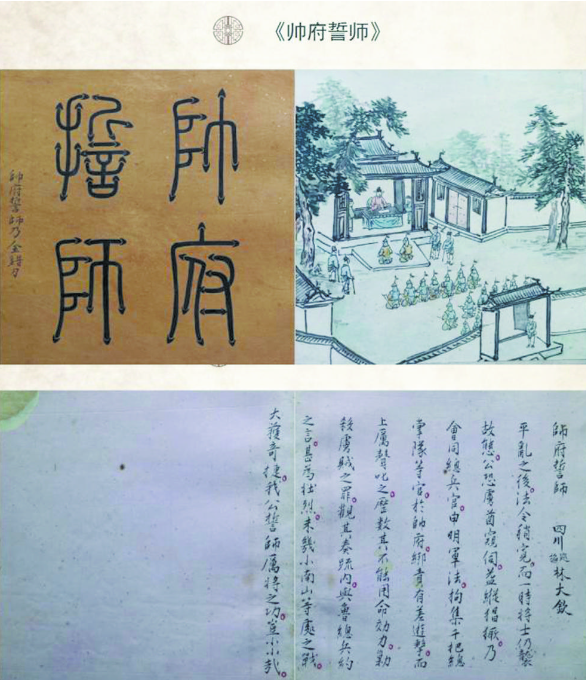 《帅府誓师》
帥府
誓師
帥府誓師乃金錯刀
帥府誓師 四川 林大欽
平亂之後法令稍寬而一時將士仍襲
故態公恐虜酋窺伺益縱猖獗乃
會同總兵官申明軍法拘集千把總
管隊等官於帥府綁責有差遊擊而
上厲聲叱之歷數其不能用命効力勦
殺虜賊之罪觀其奏疏內與魯總兵約
之言甚為壯烈未幾小南山等處之戰
大獲奇捷我公誓師厲將之功豈小小哉